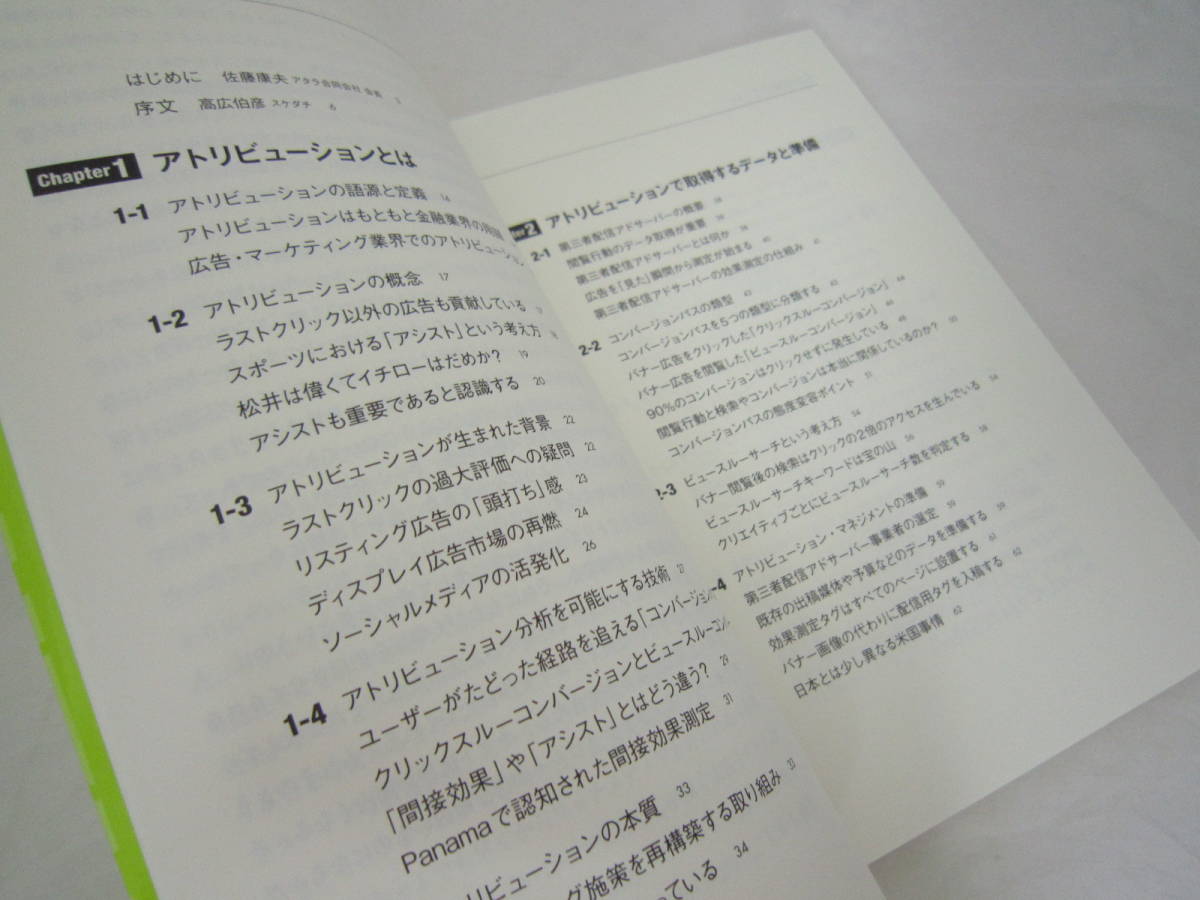 はじめに 佐藤康夫 アタラ合同会社 会長
序文 高広伯彦 スケダチ 6
Chapter1 アトリビューションとは
1-1 アトリビューションの語源と定義 14
アトリビューションはもともと金融業界の
広告・マーケティング業界でのアトリビューション
1-2 アトリビューションの概念 17
ラストクリック以外の広告も貢献している 17
スポーツにおける「アシスト」という考え方 18
松井は偉くてイチローはだめか? 19
アシストも重要であると認識する 20
1-3 アトリビューションが生まれた背景 22
ラストクリックの過大評価への疑問 22
リスティング広告の「頭打ち」感 23
ディスプレイ広告市場の再燃 24
ソーシャルメディアの活発化 26
1-4 アトリビューション分析を可能にする技術 27
ユーザーがたどった経路を追える「コンバージョン
クリックスルーコンバージョンとビュースルーコン
「間接効果」や「アシスト」とはどう違う? 29
Panamaで認知された間接効果測定 31
リビューションの本質 33
グ施策を再構築する取り組み 33
ている 34
ter2 アトリビューションで取得するデータと準備
2-1 第三者配信アドサーバーの概要 38
閲覧行動のデータ取得が重要 38
第三者配信アドサーバーとは何か 39
広告を「見た」瞬間から測定が始まる 40
第三者配信アドサーバーの効果測定の仕組み 41
2-2 コンバージョンパスの類型 43
コンバージョンパスを5つの類型に分類する 43
バナー広告をクリックした「クリックスルーコンバージョン」 44
バナー広告を閲覧した「ビュースルーコンバージョン」
90%のコンバージョンはクリックせずに発生している 48
閲覧行動と検索やコンバージョンは本当に関係しているのか? 50
コンバージョンパスの態度変容ポイント 51
2-3 ビュースルーサーチという考え方 54
バナー閲覧後の検索はクリックの2倍のアクセスを生んでいる 54
ビュースルーサーチキーワードは宝の山 56
クリエイティブごとにビュースルーサーチ数を判定する 58
-4 アトリビューション・マネジメントの準備 59
第三者配信アドサーバー事業者の選定 59
既存の出稿媒体や予算などのデータを準備する 59
効果測定タグはすべてのページに設置する 61
バナー画像の代わりに配信用タグを入稿する 62
日本とは少し異なる米国事情 62